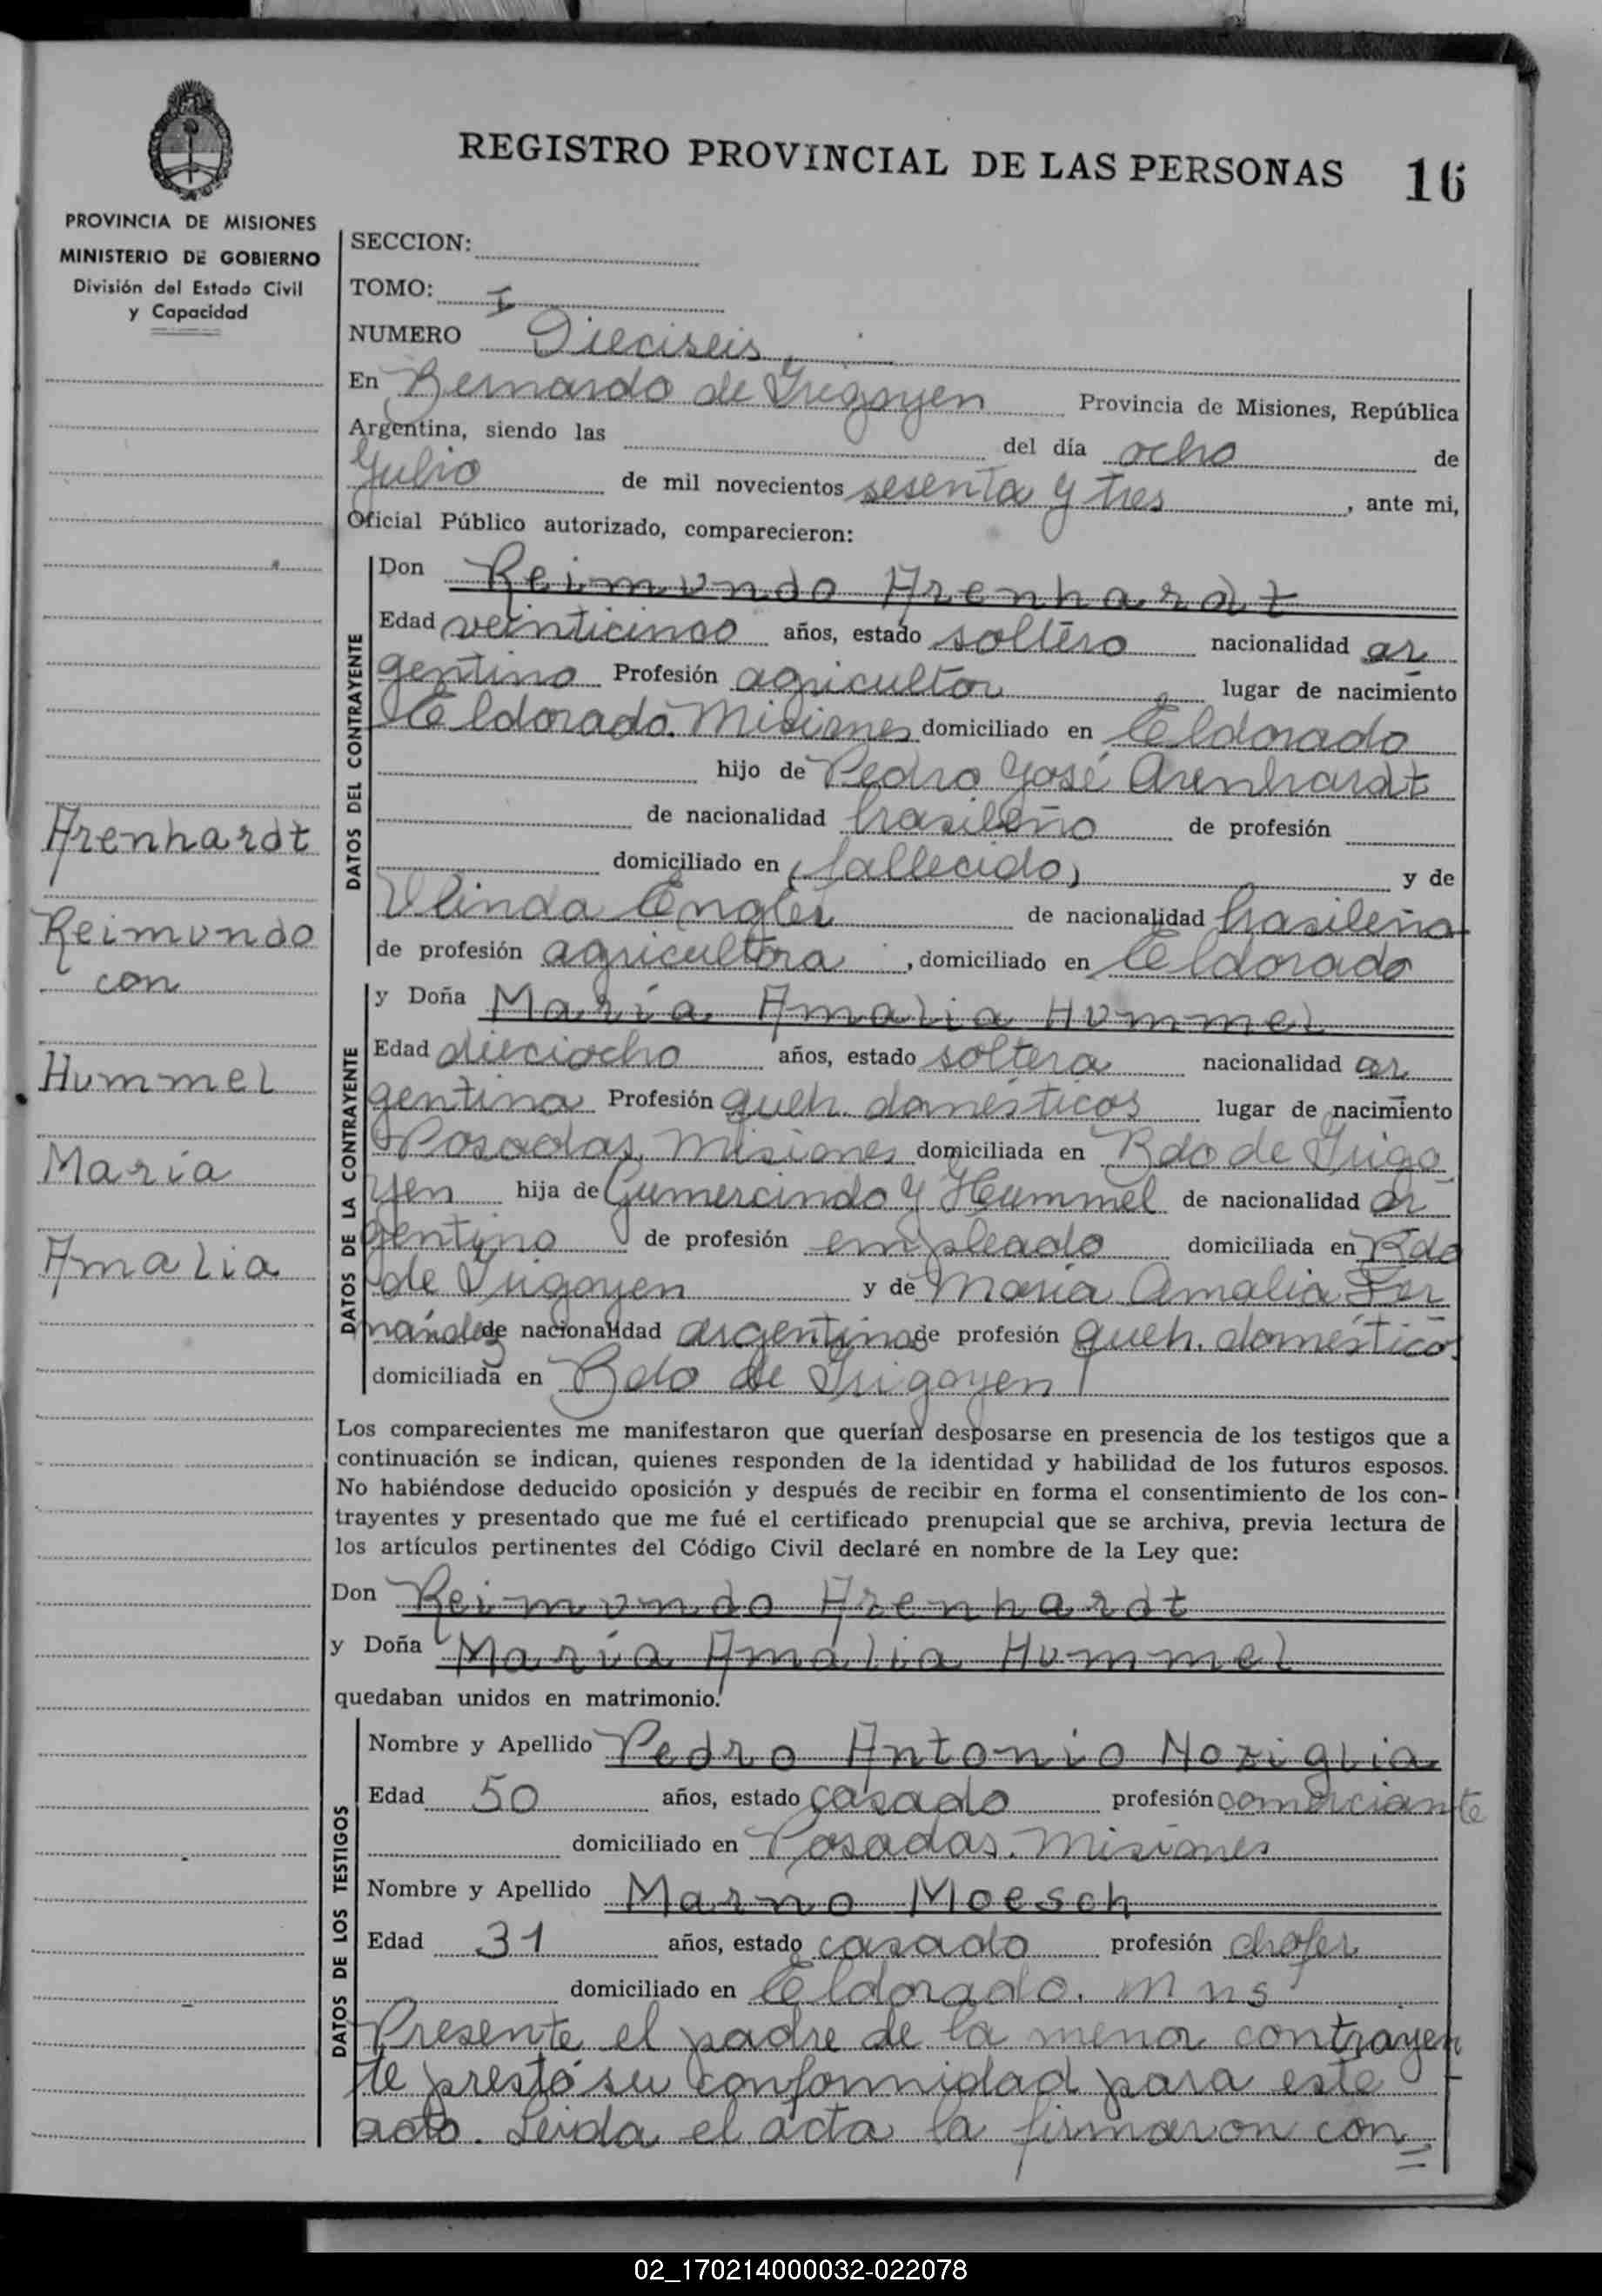 REGISTRO PROVINCIAL DE LAS PERSONAS 16
PROVINCIA DE MISIONES
MINISTERIO DE GOBIERNO
División del Estado Civil
y Capacidad
SECCION:
TOMO: I
NUMERO Dieciseis
En Bernardo de Irigoyen Provincia de Misiones, República
Argentina, siendo las del día ocho de
Julio de mil novecientos sesenta y tres, ante mi,
Oficial Público autorizado, comparecieron:
DATOS DEL CONTRAYENTE
Don Reimundo Arenhardt
Edad veinticinco años, estado soltero nacionalidad ar
gentino Profesión agricultor lugar de nacimiento
Eldorado. Misiones domiciliado en Eldorado
hijo de Pedro José Arenhardt
de nacionalidad brasileño de profesión
domiciliado en (fallecido) y de
Ulinda Engler de nacionalidad brasileña
de profesión agricultora, domiciliado en Eldorado
Arenhardt
Reimundo
con
Hummel
María
Amalia
DATOS DE LA CONTRAYENTE
y Doña María Amalia Hummel
Edad dieciocho años, estado soltera nacionalidad ar
gentina Profesión queh. domésticos lugar de nacimiento
Posadas, Misiones domiciliada en Bdo de Irigo
yen hija de Gumercindo Y Hummel de nacionalidad ar
gentino de profesión empleado domiciliada en Bdo
de Irigoyen y de María Amalia Fer
nández de nacionalidad argentina de profesión queh. doméstico
domiciliada en Bdo de Irigoyen
Los comparecientes me manifestaron que querían desposarse en presencia de los testigos que a
continuación se indican, quienes responden de la identidad y habilidad de los futuros esposos.
No habiéndose deducido oposición y después de recibir en forma el consentimiento de los con-
trayentes y presentado que me fué el certificado prenupcial que se archiva, previa lectura de
los artículos pertinentes del Código Civil declaré en nombre de la Ley que:
Don Reimundo Arenhardt
y Doña María Amalia Hummel
quedaban unidos en matrimonio.
DATOS DE LOS TESTIGOS
Nombre y Apellido Pedro Antonio Noziglia
Edad 50 años, estado casado profesión comerciante
domiciliado en Posadas. Misiones
Nombre y Apellido Marno Moesch
Edad 31 años, estado casado profesión chofer
domiciliado en Eldorado. Mns
Presente el padre de la menor contrayen
te prestó su conformidad para este
acto. Leida el acta la firmaron con=
02_170214000032-022078